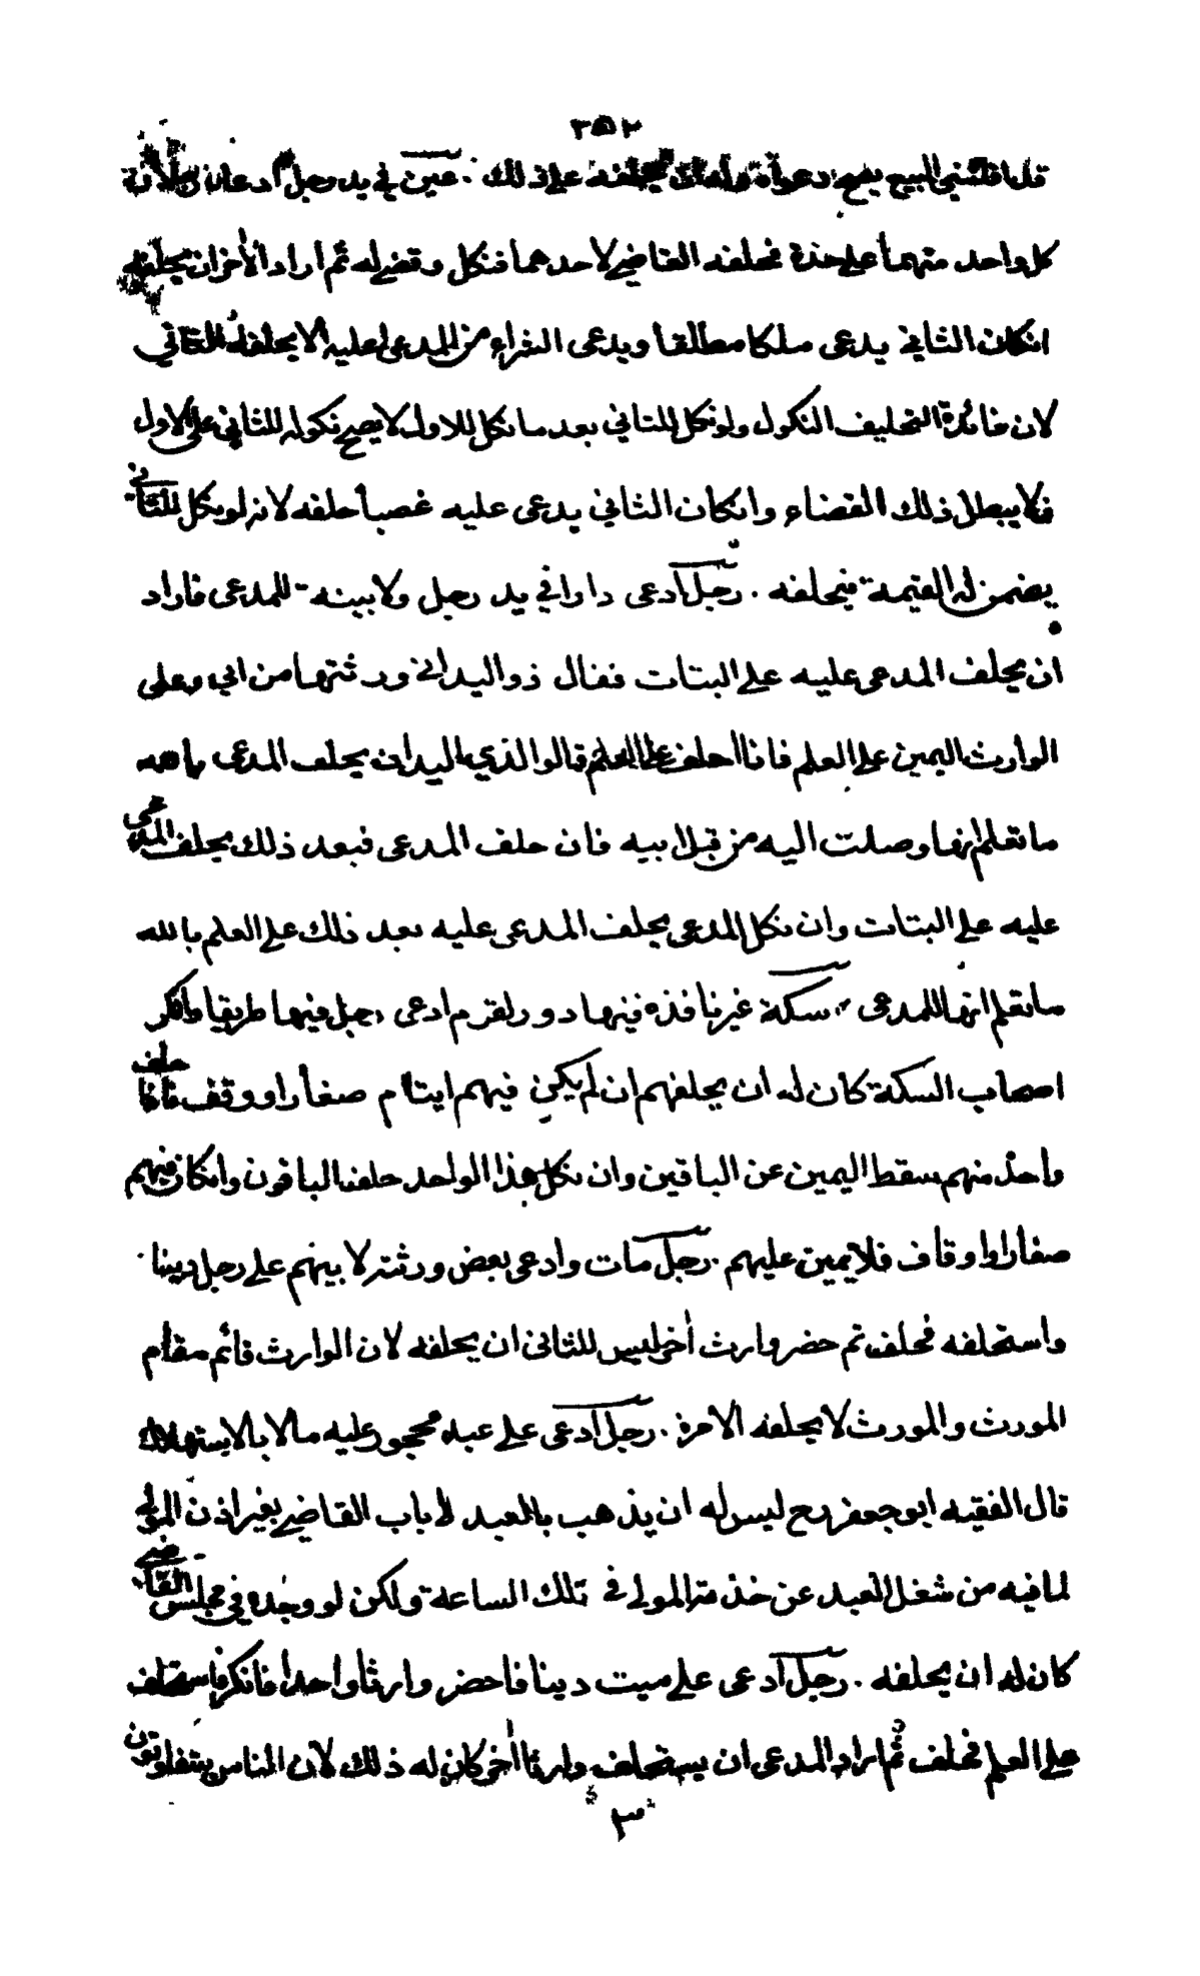 ٣٥٢
البيع يصح دعواه وله ان يحلفه على ذلك . عين في يد رجل ادعاه
كل واحد منهما على حدة فحلفه القاضي لاحدهما فنكل وقضي له ثم اراد الأخر ان يحلفه
انكان الثاني يدعى ملكا مطلقا ويدعى الشراء من المدعى عليه لا يحلفه القاضي
لان فائدة التحليف النكول ولو نكل للثاني بعد ما نكل للاول لا يصح نكوله للثاني على الاول
فلا يبطل ذلك القضاء وانكان الثاني يدعى عليه غصبا حلفه لانه لو نكل للثاني
يضمن له القيمة فيحلفه . رجل ادعى دارا في يد رجل ولا بينة للمدعى فاراد
ان يحلف المدعى عليه على البتات فقال ذو اليد اني ورثتها من ابي وعلى
الوارث اليمين على العلم فانا احلف على العلم قالوا لذي اليد ان يحلف المدعى بالله
ما تعلم انها وصلت اليه من قبل ابيه فان حلف المدعى فبعد ذلك يحلف المدعى
عليه على البتات وان نكل المدعى يحلف المدعى عليه بعد ذلك على العلم بالله
ما تعلم انها للمدعى . سكة غير نافذة فيها دور لقوم ادعى رجل فيها طريقا وانكر
اصحاب السكة كان له ان يحلفهم ان لم يكن فيهم ايتام صغارا او وقف فاذا حلف
واحد منهم سقط اليمين عن الباقين وان نكل هذا الواحد حلف الباقون وانكان فيهم
صغارا واوقاف فلا يمين عليهم . رجل مات وادعى بعض ورثته لا بينهم على رجل دينا
واستحلفه فحلف ثم حضر وارث أخر ليس للثانى ان يحلفه لان الوارث قائم مقام
المورث والمورث لا يحلفه الا مرة . رجل ادعى على عبد محجور عليه مالا بالاستهلاك
قال الفقيه ابو جعفر رح ليس له ان يذهب بالعبد الى باب القاضي بغير اذن المولى
لما فيه من شغل العبد عن خدمة المولى في تلك الساعة ولكن لو وجده في مجلس القاضي
كان له ان يحلفه . رجل ادعى على ميت دينا فاحضر وارثا واحدا فانكر فاستحلف
على العلم فحلف ثم اراد المدعى ان يستحلف وارثا أخر كان له ذلك لان الناس يتفاوتون
٣